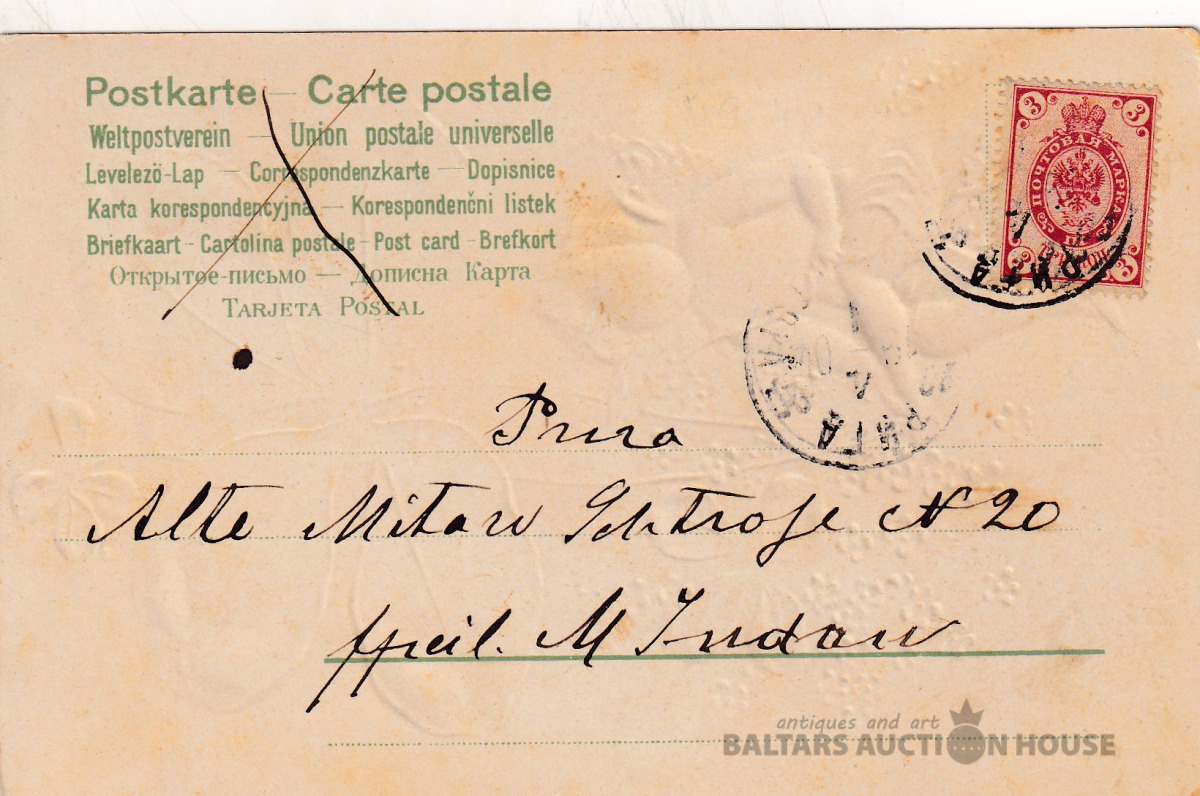 Postkarte — Carte postale
Weltpostverein — Union postale universelle
Levelező-Lap — Correspondenzkarte — Dopisnice
Karta korespondencyjna — Korespondenčni listek
Briefkaart - Cartolina postale - Post card - Brefkort
Открытое-письмо — Дописна Карта
TARJETA POSTAL
3 3
ПОЧТОВАЯ МАРКА
3 3
РИГА
РИГА
Рига
Alte Mitau Schtrose N 20
M Indau
antiques and art
BALTARS AUCTION HOUSE